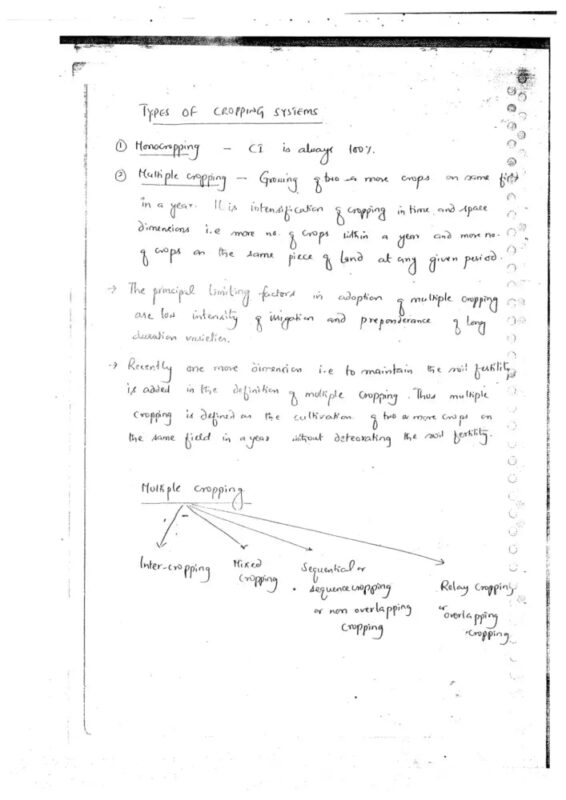 TYPES OF CROPPING SYSTEMS
① Monocropping – CI is always 100%.
② Multiple cropping – Growing of two or more crops on same field
in a year. It is intensification of cropping in time and space
dimensions i.e more no. of crops within a year and more no.
of crops on the same piece of land at any given period.
→ The principal limiting factors in adoption of multiple cropping
are low intensity of irrigation and preponderance of long
duration varieties.
→ Recently one more dimension i.e to maintain the soil fertility
is added in the definition of multiple cropping. Thus multiple
cropping is defined as the cultivation of two or more crops on
the same field in a year without deteorating the soil fertility.
Multiple cropping
Inter-cropping
Mixed
cropping
Sequential or
sequence cropping
or non overlapping
cropping
Relay cropping
or overlapping
cropping